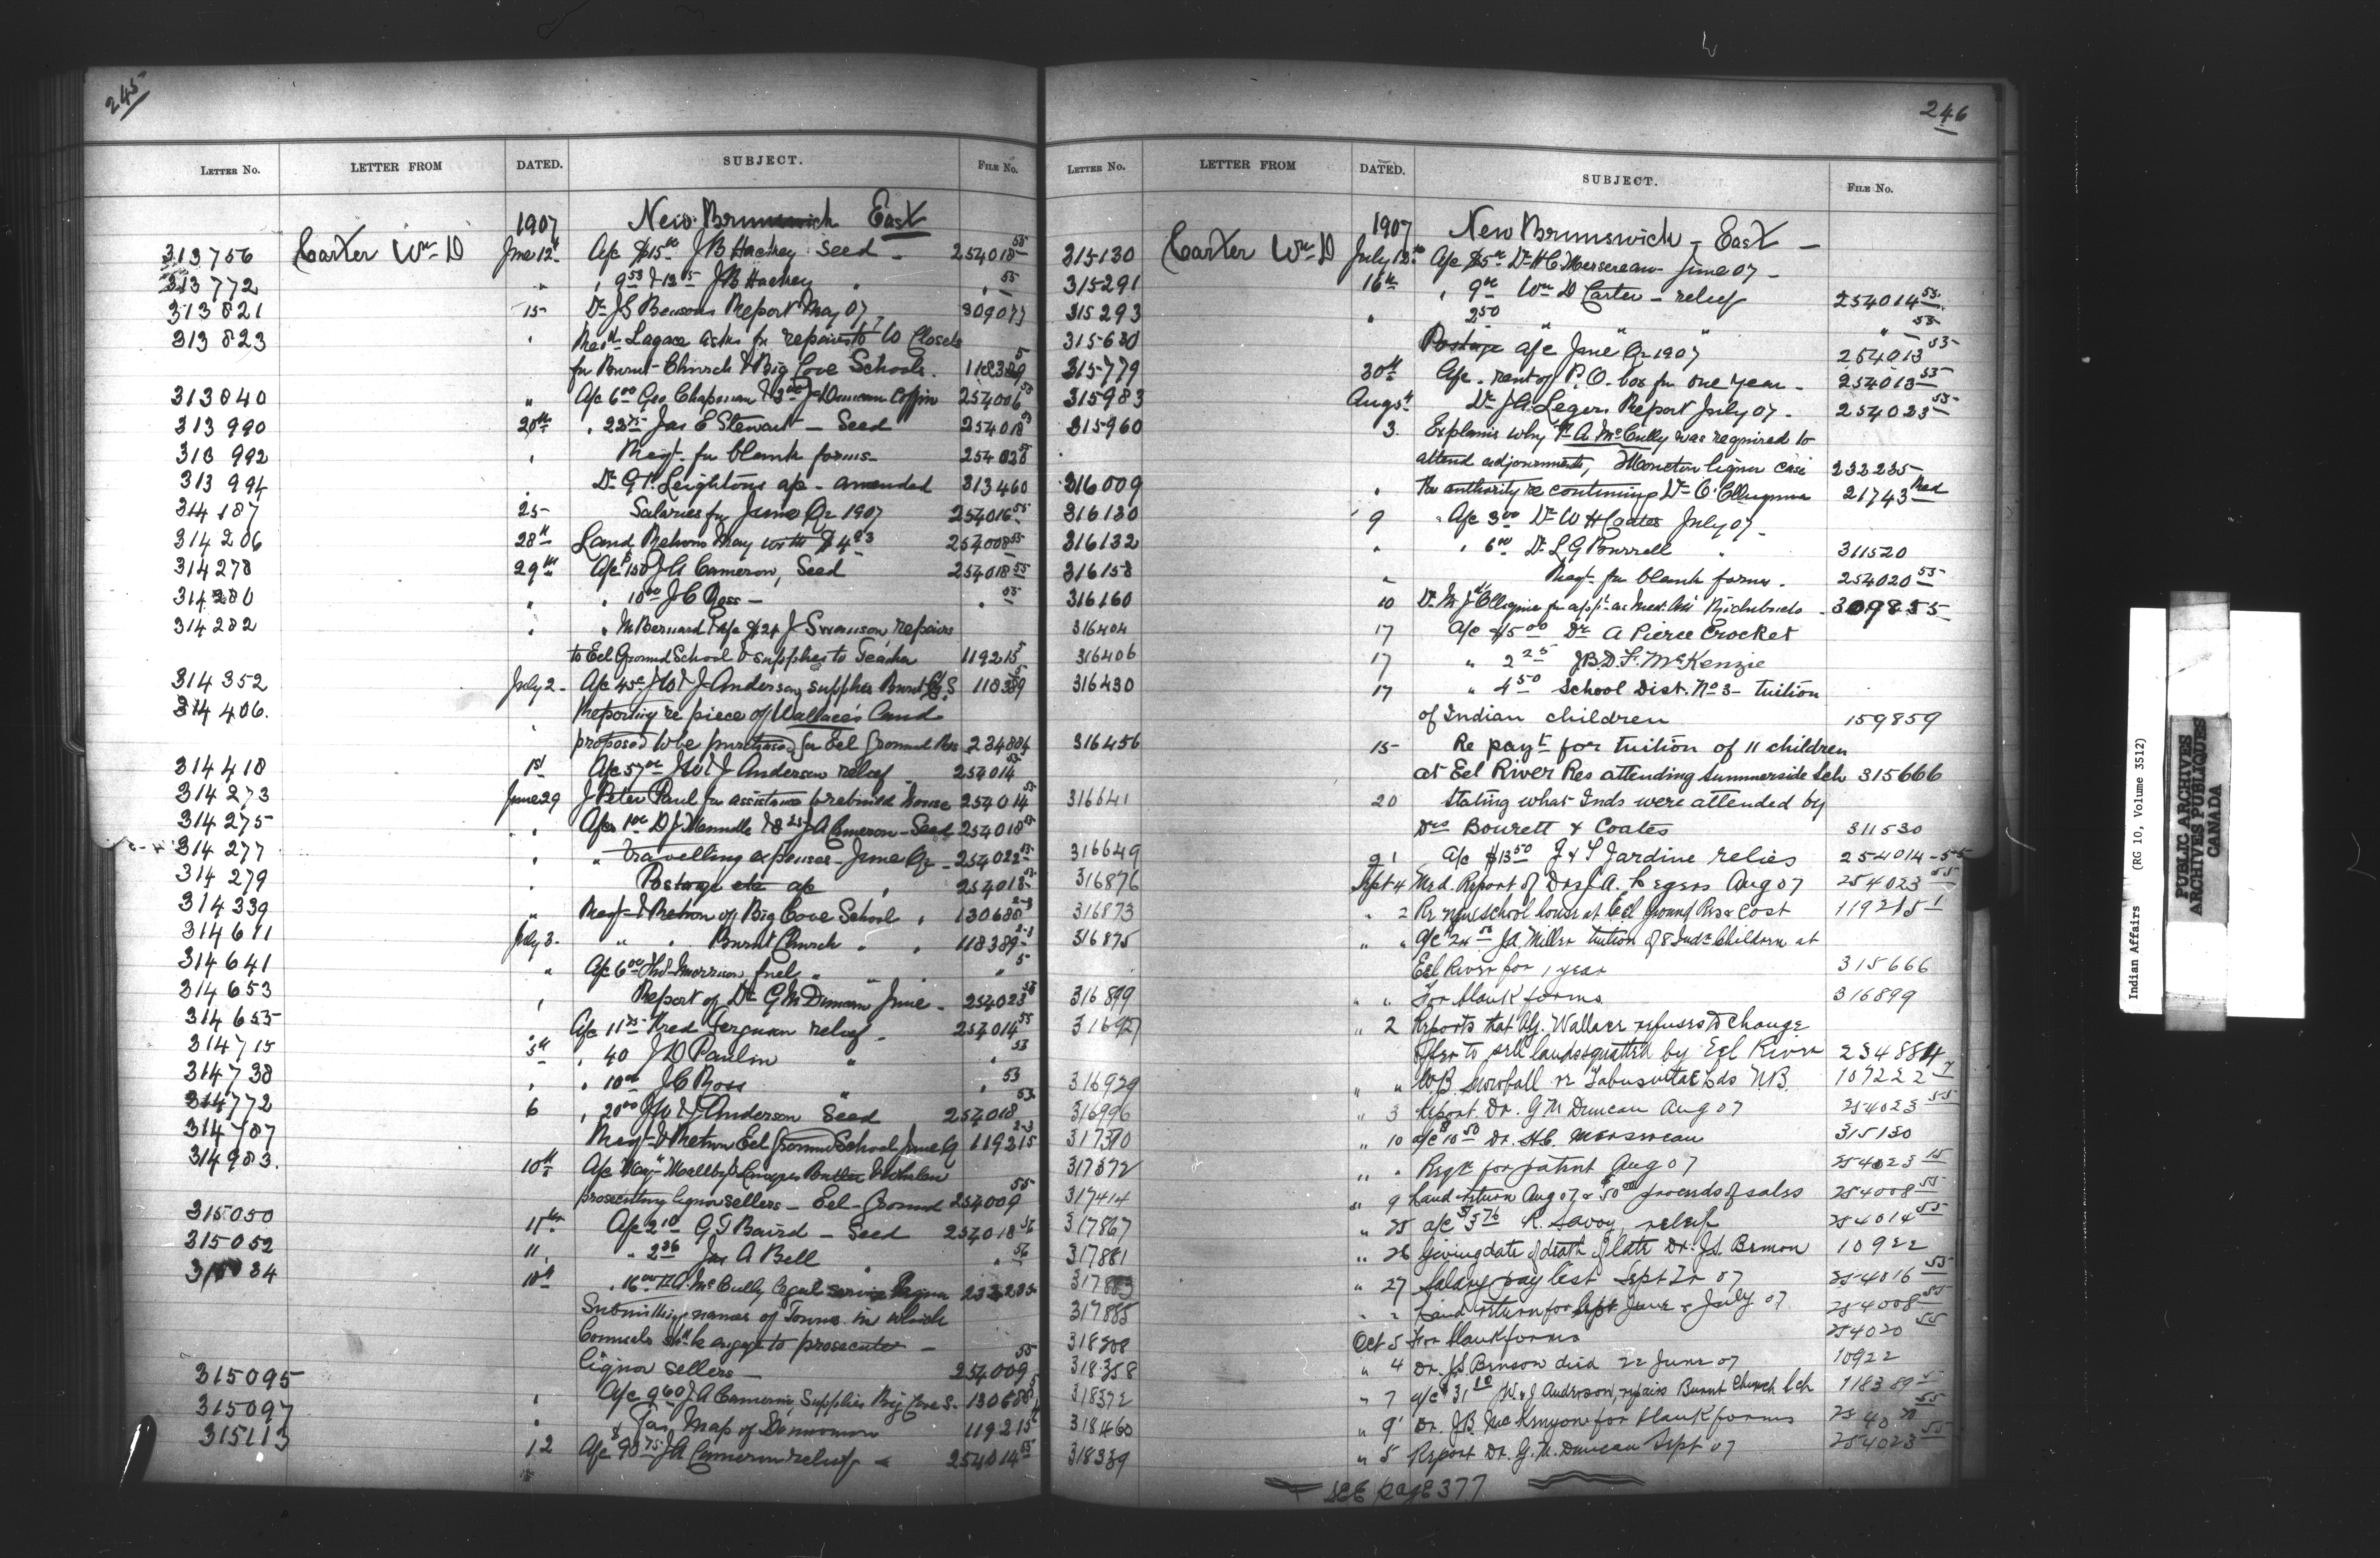 245
LETTER NO. LETTER FROM DATED. SUBJECT. FILE NO.
1907 New Brunswick East
313756 Carter Wm D June 12th A/c $15.00 J B Hachey Seed 254018 55
313772 " 9 53 & 13 15 J B Hachey " " 55
313821 15 Dr J S Bensons Report May 07 309077
313823 " Legace asks for repairs to W Closets
for Burnt Church & Big Cove Schools. 118389 5
313840 " A/c 6 00 Geo Chapman & 3 00 Duncan Coffin 254006
313990 20th " 22 75 Jas E Stewart - Seed 254018
313992 " Reqt. for blank forms 254020
313994 " Dr G T Leightons a/c - amended 313460
314187 25 Salaries for June Qr 1907 254016 55
314206 28th Land Returns May with $4 83 254008 55
314278 29th A/c 150 J A Cameron, Seed 254018 55
314280 " " 10 00 J C Ross - " 55
314282 " M Bernard A/c $24 J Swanson, repairs
to Eel Ground School & supplies to Teacher 119215 5
314352 July 2 A/c 45c J W & J Anderson, supplies Burnt Ch. S 118389 5
314406. " Reporting re piece of Wallace's Land
proposed to be purchased for Eel Ground Res 234884
314418 1st A/c 57 00 J W & J Anderson relief 254014 55
314273 June 29 J Peter Paul for assistance to rebuild house 254014
314275 " A/cs 1 00 D J Manndle & 8 25 J A Cameron - Seed 254018
314277 " " Travelling expenses - June Qr 254022
314279 " Postage etc a/c " 254013
314339 " Reqt & Return of Big Cove School " 130688 2-3
314611 July 3. " " Burnt Church " " 118389 2-3
314641 " A/c 6 00 Thos Morrison fuel " " " 5
314653 " Report of Dr G M Duncan June 254023
314655 A/c 11 75 Fred Ferguson relief 254014 55
314715 5th " 40 J D Paulin " " 53
314738 " " 10 00 J C Ross " " 53
314772 6 " 20 00 J W & J Anderson Seed 254018
314787 Reqt & Return Eel Ground School June Q 119215 2-3
314983. 10th A/c Butler & Whalen
prosecuting liquor sellers - Eel-Ground 254009 55
315050 11th A/c 2 10 G T Baird - Seed 254018 56
315052 11 " 2 36 Jas A Bell " " 56
10th " 16 00 F A McCully legal service liquor 232235
Submitting names of Towns in which
Counsels shd be engaged to prosecute -
liquor sellers 254009 55
315095 " A/c 9 60 J A Cameron, Supplies Big Cove S. 130688 5
315097 " Map of 119215
315113 12 A/c 90 75 J A Cameron relief 254014 55
246
LETTER NO. LETTER FROM DATED. SUBJECT. FILE NO.
1907 New Brunswick - East -
315130 Carter Wm D July 12th A/c $5 00 Dr H C Mersereau - June 07 -
315291 16th " 9 00 Wm D Carter - relief 254014 53
315293 " 2 50 " " " " 53
315630 Postage A/c June Qr 1907 254013 53
315779 30th A/c. rent of P.O. box for one year - 254013 53
315983 Aug 5th Dr J A Legers Report July 07 - 254023 53
315960 3. Explains why F A McCully was required to
attend adjournments, Moncton liquor case 232235
316009 " Re authority re continuing Dr O. 21743 Med
316130 9 A/c 3 00 Dr W H Coates July 07
316132 " " 6 00 Dr L G Burrell " 311520
316158 " Reqt. for blank forms. 254020 53
316160 10 as Med. Att Richibucto 309855
316404 17 A/c $5 00 Dr A Pierce Crocket
316406 17 " 2 25 J.B.D.F. McKenzie
316430 17 " 4 50 School Dist. No 3 - tuition
of Indian children 159859
316456 15 Re payt for tuition of 11 children
at Eel River Res attending Summerside Sch 315666
316641 20 Stating what Inds were attended by
Drs Bourett & Coates 311530
316649 21 A/c $13 50 J & S Jardine relief 254014-55
316876 Sept 4 Med. Report of Drs J.A. Legers Aug 07 254023 55
316873 " 2 Re new school house at Eel Ground Res & Cost 119215 1
316875 " " A/c 24 50 J A Miller tuition of 8 Inds Children at
Eel River for 1 year 315666
316899 " " For blank forms 316899
316927 " 2 Reports that A.G. Wallace refuses to change
offer to sell lands squatted by Eel River 234884
316929 " " W.B. Snowball re Tabusintac Lds NB. 107222 7
316996 " 3 Report. Dr. G M Duncan Aug 07 254023 55
317370 " 10 a/c 10 50 Dr. H.C. Mersereau 315130
317372 " " Reqt for patent Aug 07 254023 15
317414 " 9 Land return Aug 07 & 50 00 proceeds of sales 254008 55
317867 " 25 a/c $3 76 R. Savoy, relief 254014 55
317881 " 26 Giving date of death of late Dr. J.S. Benson 10922
317883 " 27 Salary pay list Sept Qr 07 254016 55
317885 " " Land return for Sept June & July 07 254008 55
318308 Oct 5 For blank forms 254020 55
318358 " 4 Dr. J.S. Benson died 22 June 07 10922
318372 " 7 a/c $31 10 W. & J Anderson, repairs Burnt Church Sch 118389 5
318460 " 9 Dr. J.B. for blank forms 254020 55
318339 " 5 Report Dr. G.M. Duncan Sept 07 254023 55
SEE page 377
Indian Affairs (RG 10, Volume 3512)
PUBLIC ARCHIVES
ARCHIVES PUBLIQUES
CANADA